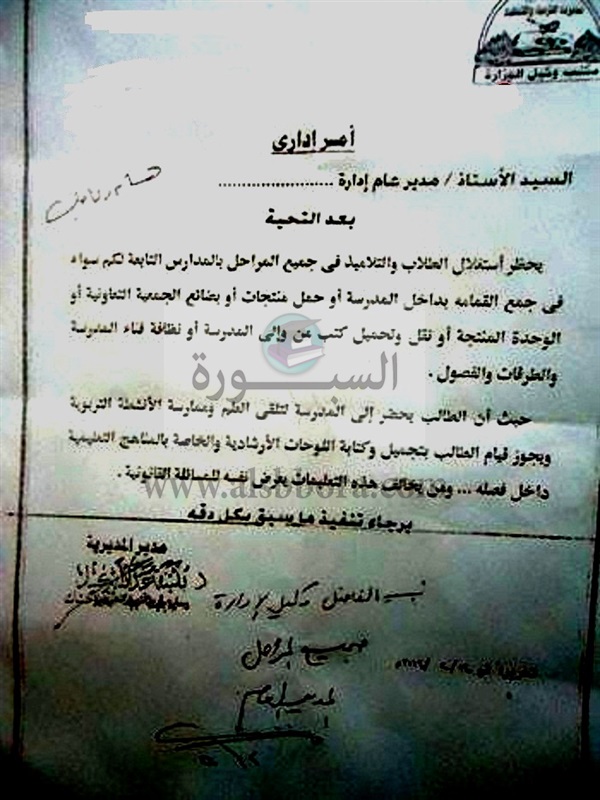 مكتب وكيل الوزارة
أمر إدارى
السيد الأستاذ / مدير عام إدارة ......................
بعد التحية
يحظر أستغلال الطلاب والتلاميذ فى جميع المراحل بالمدارس التابعة لكم سواء
فى جمع القمامه بداخل المدرسة أو حمل منتجات أو بضائع الجمعية التعاونية أو
الوحدة المنتجة أو نقل وتحميل كتب من والى المدرسة أو نظافة فناء المدرسة
والطرقات والفصول .
السبورة
حيث أن الطالب يحضر إلى المدرسة لتلقى العلم وممارسة الأنشطة التربوية
ويجوز قيام الطالب بتجميل وكتابة اللوحات الأرشادية والخاصة بالمناهج التعليمية
داخل فصله ... ومن يخالف هذه التعليمات يعرض نفسه للمسائلة القانونية .
www.alsbbora.com
برجاء تنفية ما سبق بكل دقه
مدير المديرية
وكيل الإدارة
جميع المراحل